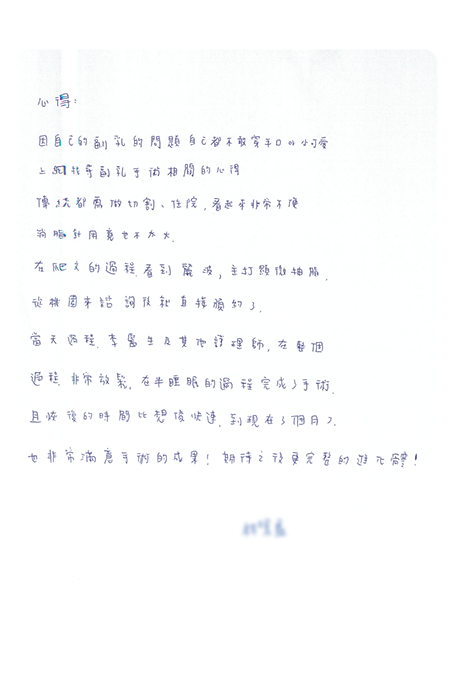 心得:
因自己的副乳的問題自己都不敢穿羊口的小可愛
上網找尋副乳手術相關的心得
傳統都需做切割、住院,看起來非常不便
消脂針用意也不太大,
在爬文的過程,看到麗波,主打顯微抽脂,
從桃園來諮詢後就直接預約了,
當天過程,李醫生及其他護理師,在整個
過程,非常放鬆,在半睡眠的過程完成了手術,
且恢復的時間比想像快速,到現在3個月了,
也非常滿意手術的成果!期待之後更完整的進化體!